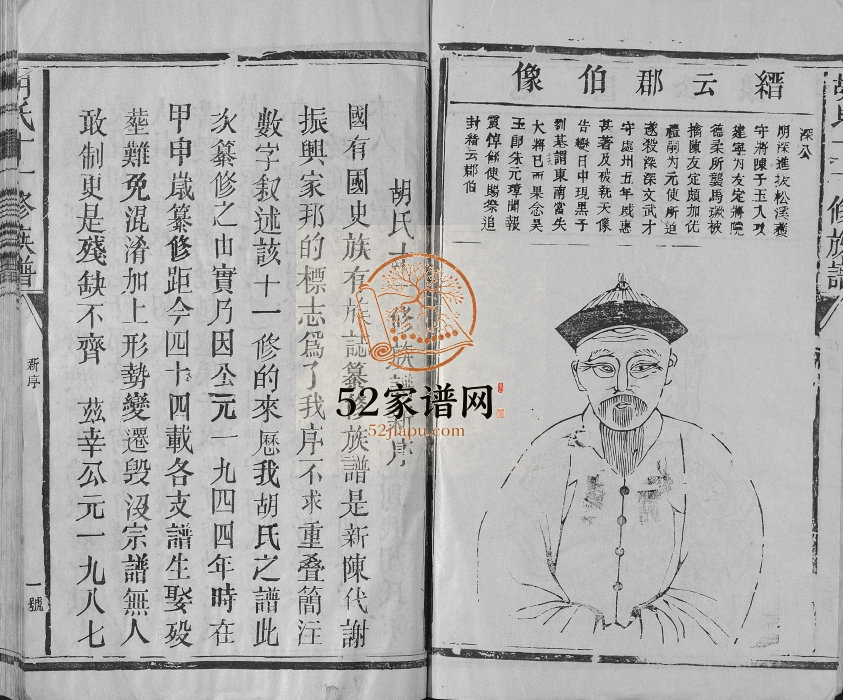 縉雲郡伯像
深公
胡深進抜松溪獲
守將陳子玉入攻
建寧為友定將阮
德柔所襲馬蹶被
擒陳友定頗加优
禮嗣为元使所迫
遂殺深深文武才
守處州五年威惠
甚著及被執天像
告變日中現黑子
劉基謂東南當失
大將已而果念吴
王即朱元璋聞報
震悼
使賜祭追
封縉云郡伯
胡氏十一修族譜新序
國有國史族有族誌纂修族譜是新陳代謝
振興家邦的標志爲了我序不求重叠簡注
數字叙述該十一修的來歷我胡氏之譜此
次纂修之由實乃因公元一九四四年時在
甲申歲纂修距今四十四載各支譜生娶殁
塟難免混淆加上形勢變遷毁沒宗譜無人
敢制更是殘缺不齊 茲幸公元一九八七
胡氏十一修族譜
新序
一號
胡氏十一修族譜
52家谱网
52jiapu.com